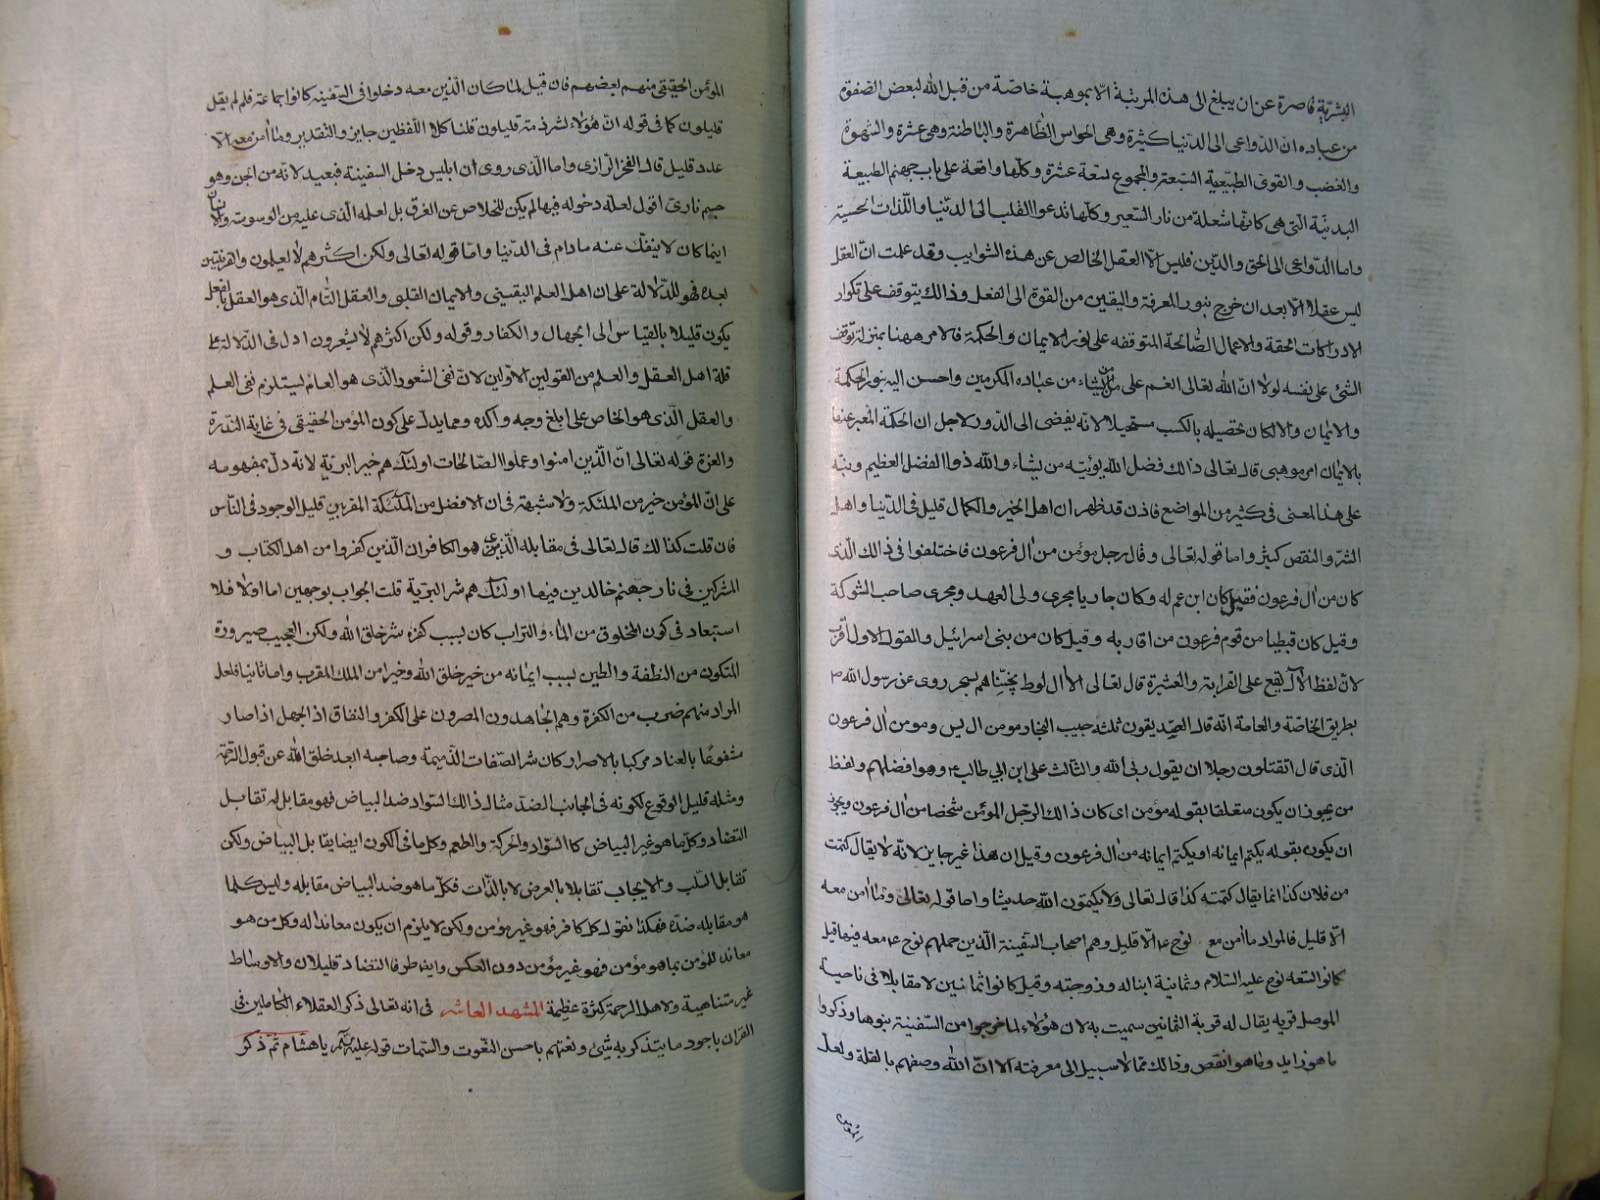 البشرية قاصرة عن ان يبلغ الى هذه المرتبة الا بموهبة خاصة من قبل الله لبعض الصفوة
من عباده ان الدواعى الى الدنيا كثيرة وهى الحواس الظاهرة والباطنة وهى عشرة والشهوة
والغضب والقوى الطبيعية السبعة والمجموع تسعة عشرة وكلها واقعة على باب جهنم الطبيعة
البدنية التى هى كانها شعلة من نار السعير وكلها تدعوا القلب الى الدنيا واللذات الحسية
واما الدواعى الى الحق والدين فليس الا العقل الخالص عن هذه الشوايب وقد علمت ان العقل
ليس عقلا الا بعد ان خرج بنور المعرفة واليقين من القوة الى الفعل وذالك يتوقف على تكرار
الادراكات الحقة والاعمال الصالحة المتوقفه على نور الايمان والحكمة فالامر ههنا بمنزلة توقف
الشئ على نفسه لولا ان الله تعالى انعم على من يشاء من عباده المكرمين واحسن اليه بنور الحكمة
والايمان والا لكان تحصيله بالكسب مستحيلا لانه يفضى الى الدور ولاجل ان الحكمة المعبر عنها
بالايمان امر موهبى قال تعالى ذالك فضل الله يؤتيه من يشاء والله ذو الفضل العظيم ونبه
على هذا المعنى فى كثير من المواضع فاذن قد ظهر ان اهل الخير والكمال قليل فى الدنيا واهل
الشر والنقص كثير واما قوله تعالى وقال رجل مؤمن من ال فرعون فاختلفوا فى ذالك الذى
كان من ال فرعون فقيل كان ابن عم له وكان جاريا مجرى ولى العهد ومجرى صاحب الشوكة
وقيل كان قبطيا من قوم فرعون من اقاربه وقيل كان من بنى اسرائيل والقول الاول اقرب
لان لفظ الال يقع على القرابة والعشيرة قال تعالى الا ال لوط نجيناهم بسحر روى عن رسول الله ص
بطريق الخاصة والعامة انه قال الصديقون ثلثة حبيب النجار مومن ال يس ومومن ال فرعون
الذى قال اتقتلون رجلا ان يقول ربى الله والثالث على ابن ابي طالب ع وهو افضلهم ولفظ
من يجوز ان يكون متعلقا بقوله مؤمن اى كان ذالك الرجل المؤمن شخصا من ال فرعون ويجوز
ان يكون بقوله يكتم ايمانه او يكتم ايمانه من ال فرعون وقيل ان هذا غير جايز لانه لا يقال كتمت
من فلان كذا انما يقال كتمته كذا قال تعالى ولا يكتمون الله حديثا واما قوله تعالى وما امن معه
الا قليل فالمراد ما امن مع نوح ع الا قليل وهم اصحاب السفينة الذين حملهم نوح ع معه فيها قيل
كانوا تسعه نوح عليه السلام وثمانية ابناء له وزوجته وقيل كانوا ثمانين لا مقابلا فى ناحية
الموصل قريه يقال له قرية الثمانين سميت به لان هؤلاء لما خرجوا من السفينة بنوها وذكروا
ما هو زايد وما هو انقص وذالك مما لا سبيل الى معرفته الا ان الله وصفهم بالقلة ولعل
المؤمن
المؤمن الحقيقى منهم بعضهم فان قيل لما كان الذين معه دخلوا فى السفينه كانوا جماعة فلم لم يقل
قليلون كما فى قوله ان هؤلاء لشرذمة قليلون قلنا كلا اللفظين جايز والتقدير وما امن معه الا
عدد قليل قال الفخر الرازى واما الذى روى ان ابليس دخل السفينة فبعيد لانه من الجن وهو
جسم نارى اقول لعله دخوله فيها لم يكن للخلاص عن الغرق بل لعمله الذى عليه من الوسوسة والانسان
اينما كان لا ينفك عنه مادام فى الدنيا واما قوله تعالى ولكن اكثرهم لا يعلمون والقرينتين
بعده فهو للدلالة على ان اهل العلم اليقينى والايمان القلبى والعقل التام الذى هو العقل بالفعل
يكون قليلا بالقياس الى الجهال والكفار وقوله ولكن اكثرهم لا يشعرون ادل فى الدلالة على
قلة اهل العقل والعلم من القولين الاولين لان نفى الشعور الذى هو العام يستلزم نفى العلم
والعقل الذى هو الخاص على ابلغ وجه واكده ومما يدل على كون المؤمن الحقيقى فى غاية الندرة
والعزة قوله تعالى ان الذين امنوا وعملوا الصالحات اولئك هم خير البرية لانه دل بمفهومه
على ان المؤمن خير من الملئكة ولا شبهة فى ان الافضل من الملئكة المقربين قليل الوجود فى الناس
فان قلت كذالك قال تعالى فى مقابله الذى هو الكافر ان الذين كفروا من اهل الكتاب و
المشركين فى نار جهنم خالدين فيها اولئك هم شر البرية قلت الجواب بوجهين اما اولا فلا
استبعاد فى كون المخلوق من الماء والتراب كان بسبب كفره شر خلق الله ولكن العجب صيرورة
المتكون من النطفة والطين بسبب ايمانه من خير خلق الله وخيرا من الملك المقرب واما ثانيا فلعل
المراد منهم ضرب من الكفرة وهم الجاهدون المصرون على الكفر والنفاق اذ الجهل اذا صار
مشفوعا بالعناد مركبا بالاصرار كان شر الصفات الذميمة وصاحبه ابعد خلق الله عن قبول الرحمة
ومثله قليل الوقوع لكونه فى الجانب الضد مثال ذالك السواد ضد البياض فهو مقابل له تقابل
التضاد وكل ما هو غير البياض كالسواد والحركة والطعم وكل ما فى الكون ايضا يقابل البياض ولكن
تقابل السلب والايجاب تقابلا بالعرض لا بالذات فكل ما هو ضد البياض مقابله وليس كلما
هو مقابله ضده فهكذا نقول كل كافر فهو غير مؤمن ولكن لا يلزم ان يكون معاندا له وكل من هو
معاند للمؤمن بما هو مؤمن فهو غير مؤمن دون العكس وايضا طرفا التضاد قليلان والاوساط
غير متناهية ولاهل الرحمة كثرة عظيمة المشهد العاشر فى انه تعالى ذكر العقلاء الكاملين فى
القران باجود ما يتذكر به شئ ونعتهم باحسن النعوت والسمات قوله عليه السلام يا هشام ثم ذكر